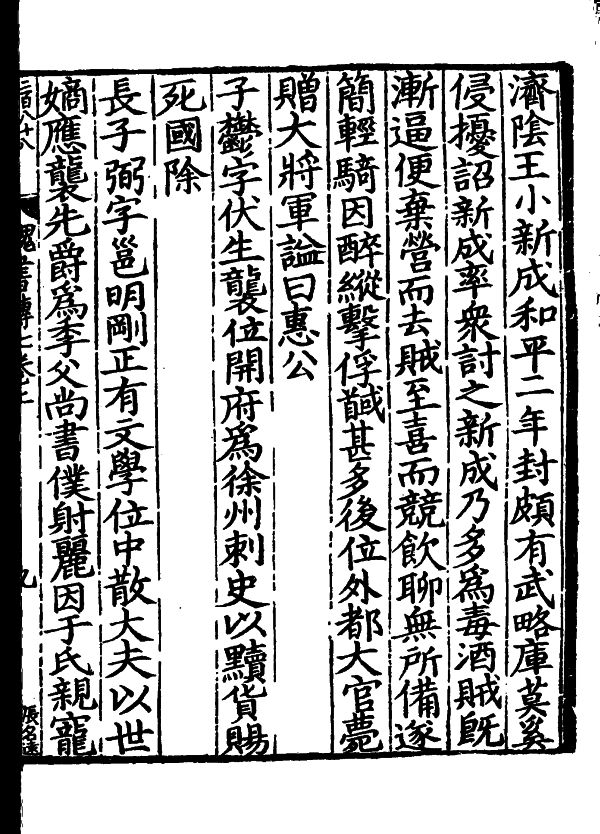 濟陰王小新成和平二年封頗有武略庫莫奚
侵擾詔新成率衆討之新成乃多爲毒酒賊旣
漸逼便棄營而去賊至喜而競飲聊無所備遂
簡輕騎因醉縱擊俘馘甚多後位外都大官薨
贈大將軍謚曰惠公
子鬱字伏生襲位開府爲徐州刺史以黷貨賜
死國除
長子弼字邕明剛正有文學位中散大夫以世
嫡應襲先爵爲季父尚書僕射麗因于氏親寵
魏書傳七卷上
九